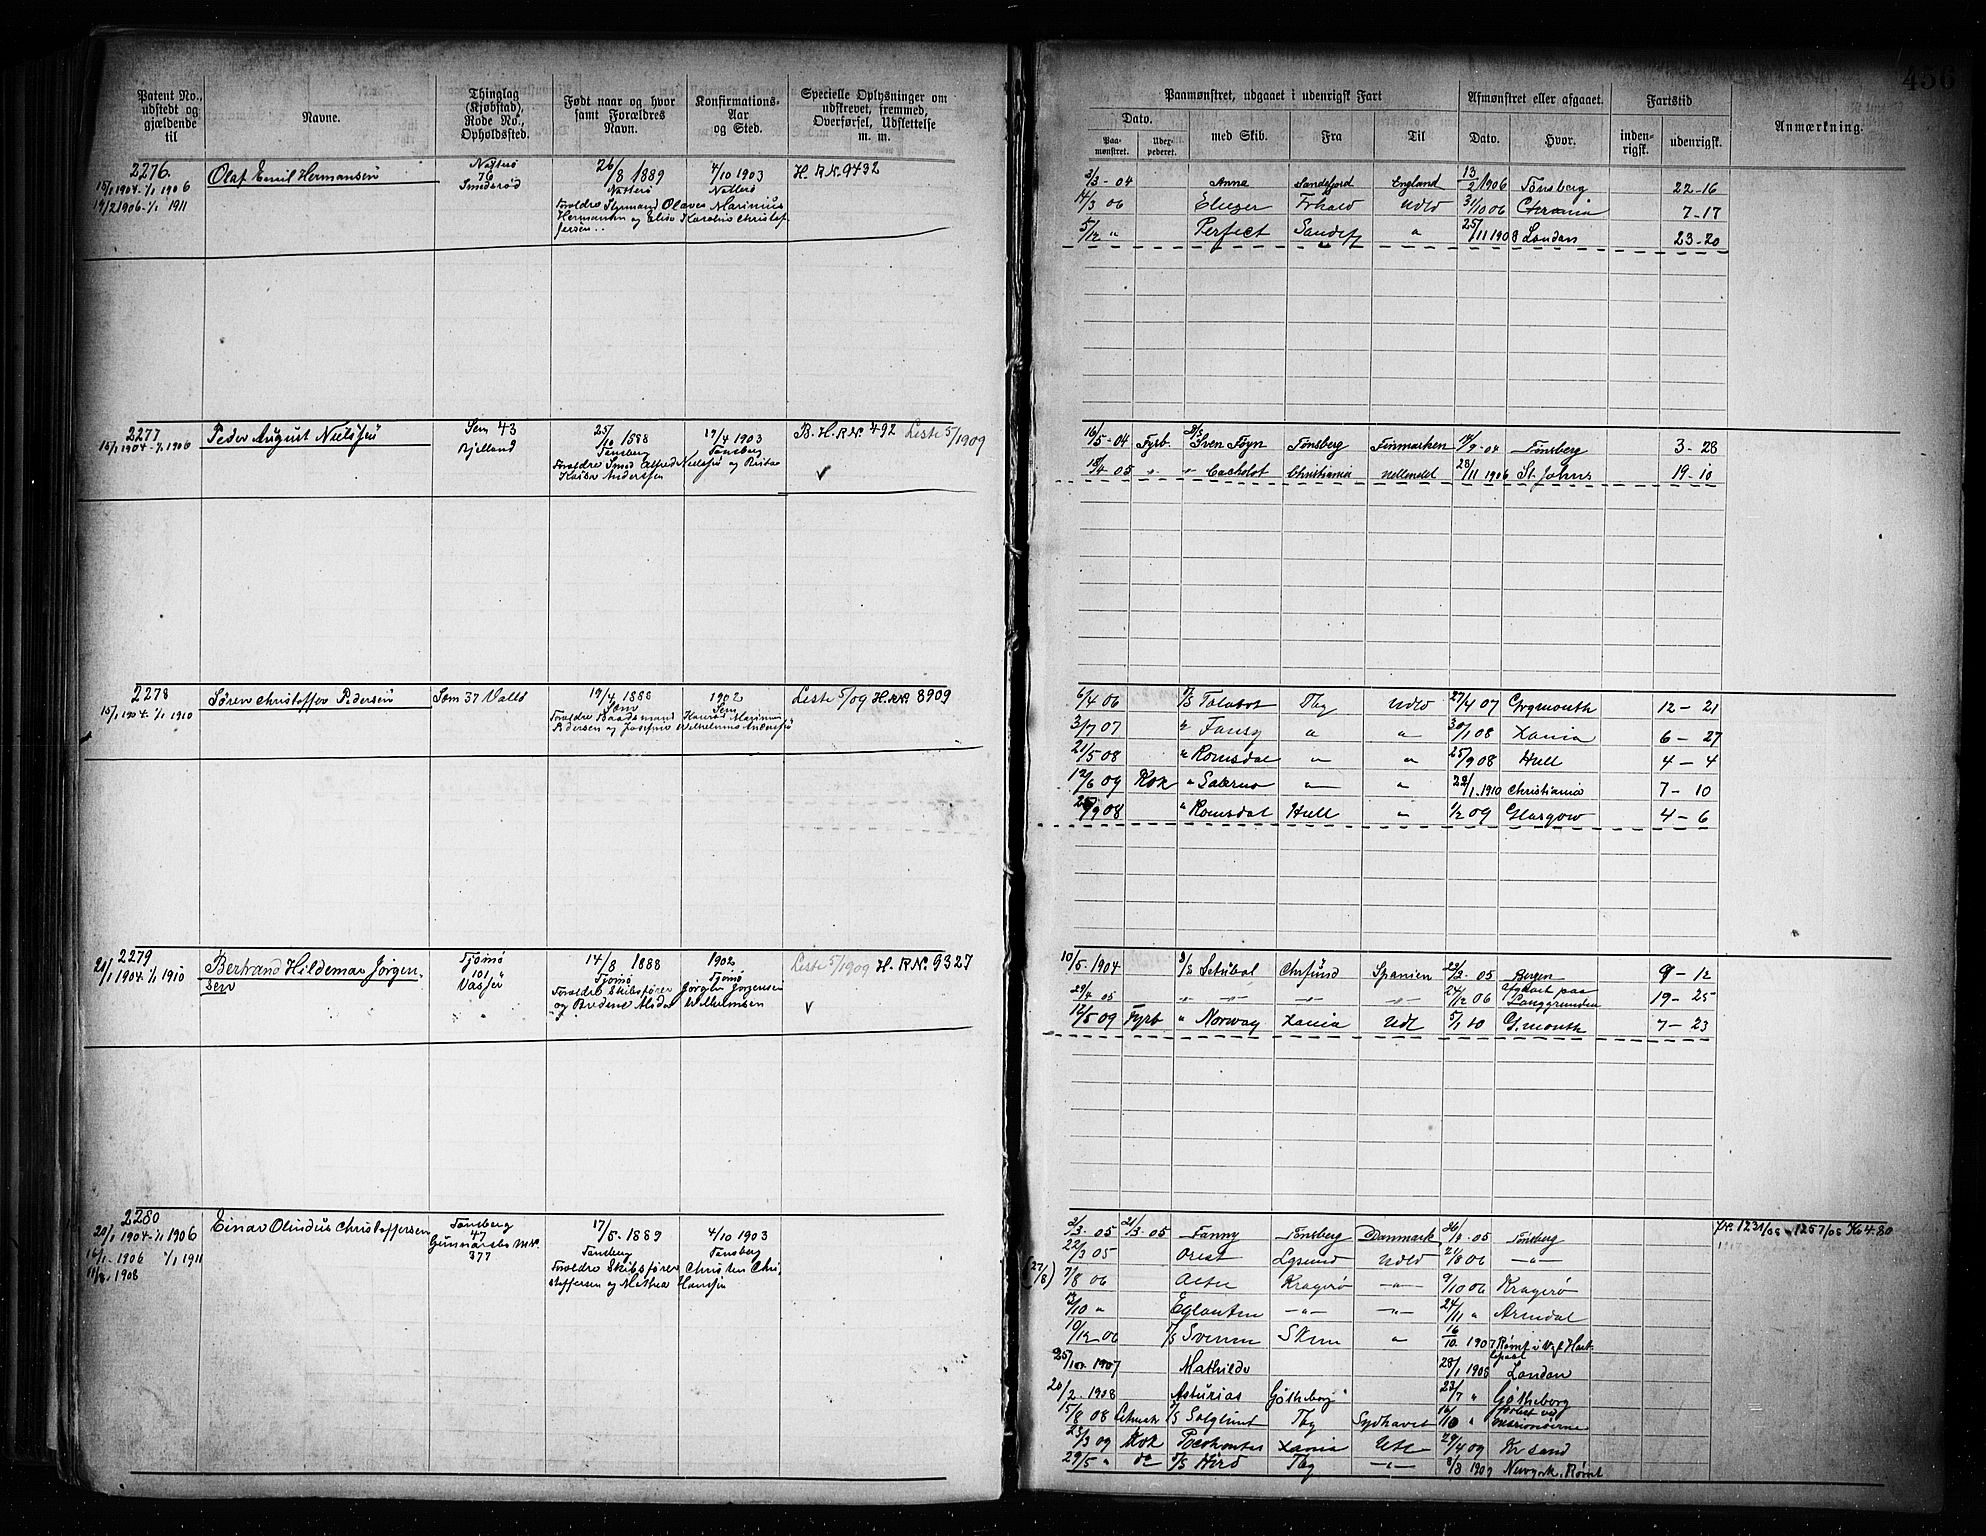 456
Patent No., udstedt og gjældende til
Navne.
Thinglag (Kjøbstad), Rode No., Opholdssted.
Født naar og hvor samt Forældres Navn.
Konfirmations-Aar og Sted.
Specielle Oplysninger om udskrevet, fremmed, Overførsel, Udslettelse m. m.
Paamønstret, udgaaet i udenrigsk Fart
Afmønstret eller afgaaet.
Fartstid
Anmærkning.
Dato.
Paamønstret.
med Skib.
Fra
Til
Dato.
Hvor.
inden-rigsk.
udenrigsk.
2276.
15/1 1904-1/1 1906
19/2 1906-1/1 1911
Olaf Emil Hermansen
Nøtterø
76
Smidsrød
26/8 1889
Nøtterø
Foreldre Styrmand Olaves Marinius
Hermansen og Elise Karoline Christof
fersen
4/10 1903
Nøtterø
H. R.N. 9432
3/3-04 Anna Sandefjord England 13/2 1906 Tønsberg 22-16
14/3 06 Eliezer Frhald Udld 31/10 06 7-17
5/12 " Perfect Sandefj " 25/11 1908 London 23-20
2277
15/1 1904-1/1 1906
Peder August Nielsen
Sem 43
Bjelland
25/10 1888
Tønsberg
Foreldre Smed Alfred Nielsen og
Andersen
19/4 1903
Tønsberg
B. H.R.N. 492 Liste 5/1909
16/5-04 Fyrb. D/S Sven Foyn Tønsberg Finmarken 19/9-04 Tønsberg 3-28
18/4 05 " " Cachalot Christiania Udlandet 28/11 1906 St. Johns 19-10
2278
15/1 1904-1/1 1910
Søren Christoffer Pedersen
Sem 37 Vallø
19/4 1888
Sem
Foreldre Baadsmand
Pedersen og Josefine Wilhelmine Andersen
1902
Sem
Liste 5/09 H.R.N. 8909
6/4 06 D/S Talabot Tbg Udld 27/4 07 Grgmouth 12-21
3/7 07 " Fansy " " 30/1 08 Xania 6-27
21/5 08 " Romsdal " " 25/9 08 Hull 4-4
12/6 09 Kok " Salerno " " 22/1 1910 Christiania 7-10
26/9 08 " Romsdal Hull " 1/2 09 Glasgow 4-6
2279
21/1 1904-1/1 1910
Bertrand Hildemar Jørgen-
sen
Tjømø
101
Vasser
14/8 1888
Tjømø
Foreldre Skibsfører Jørgen Jørgensen
og Bredine Alida Wilhelmsen
1902
Tjømø
Liste 5/1909 H. R.N. 9327
10/5-1904 D/S Setubal Chrsund Spanien 22/3-05 Bergen 9-12
29/4 05 " " " " 24/12 06 Afgaaet paa Langgrunden 19-25
12/5 09 Fyrb " Norway Xania Udl 5/1 10 G.mouth 7-23
2280
20/1 1904-1/1 1906
1906 1/1 1911
1908
Einar Olindus Christoffersen
Tønsberg
47
Gunnarsbo M.N.
377
17/5-1889
Tønsberg
Foreldre Skibsfører Christen Chri-
stoffersen og Mathea Hansen
4/10 1903
Tønsberg
2/3-05 21/3-05 Fanny Tønsberg Danmark 26/4-05 Tønsberg
22/3 05 Orest Lysund Udld 2/8 06 "
(27/8) 7/8 06 Kragerø " 9/10 06 Kragerø
13/10 " Eglantin " " 24/11 " Arendal
10/12-06 D/S Svenm Skien " 16/10 1907 Rømt i Vest Hart-
lepool
25/10 1907 Mathilde 28/1 1908 London
20/2-1908 Asturias Gøtheborg " 23/7 " Gøtheborg
15/8 08 D/S Solglimt Tbg Sydhavet 16/10 " forlist ved Crozetøerne
23/3 09 Kok Pocohontas Xania Udl 29/4 09 Kr sand
29/5 " do D/S Hird Tbg " 8/8 1909 Newyork, Rømt
1231/05 1257/05 K6 4.80